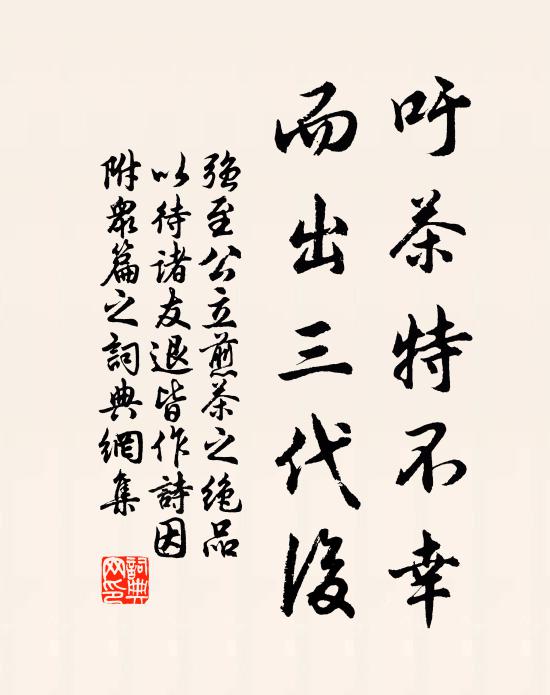 吁茶特不幸
而出三代後
強至公立煎茶之絶品
以待諸友退皆作詩因
附衆篇之詞典網集
詞典
网印